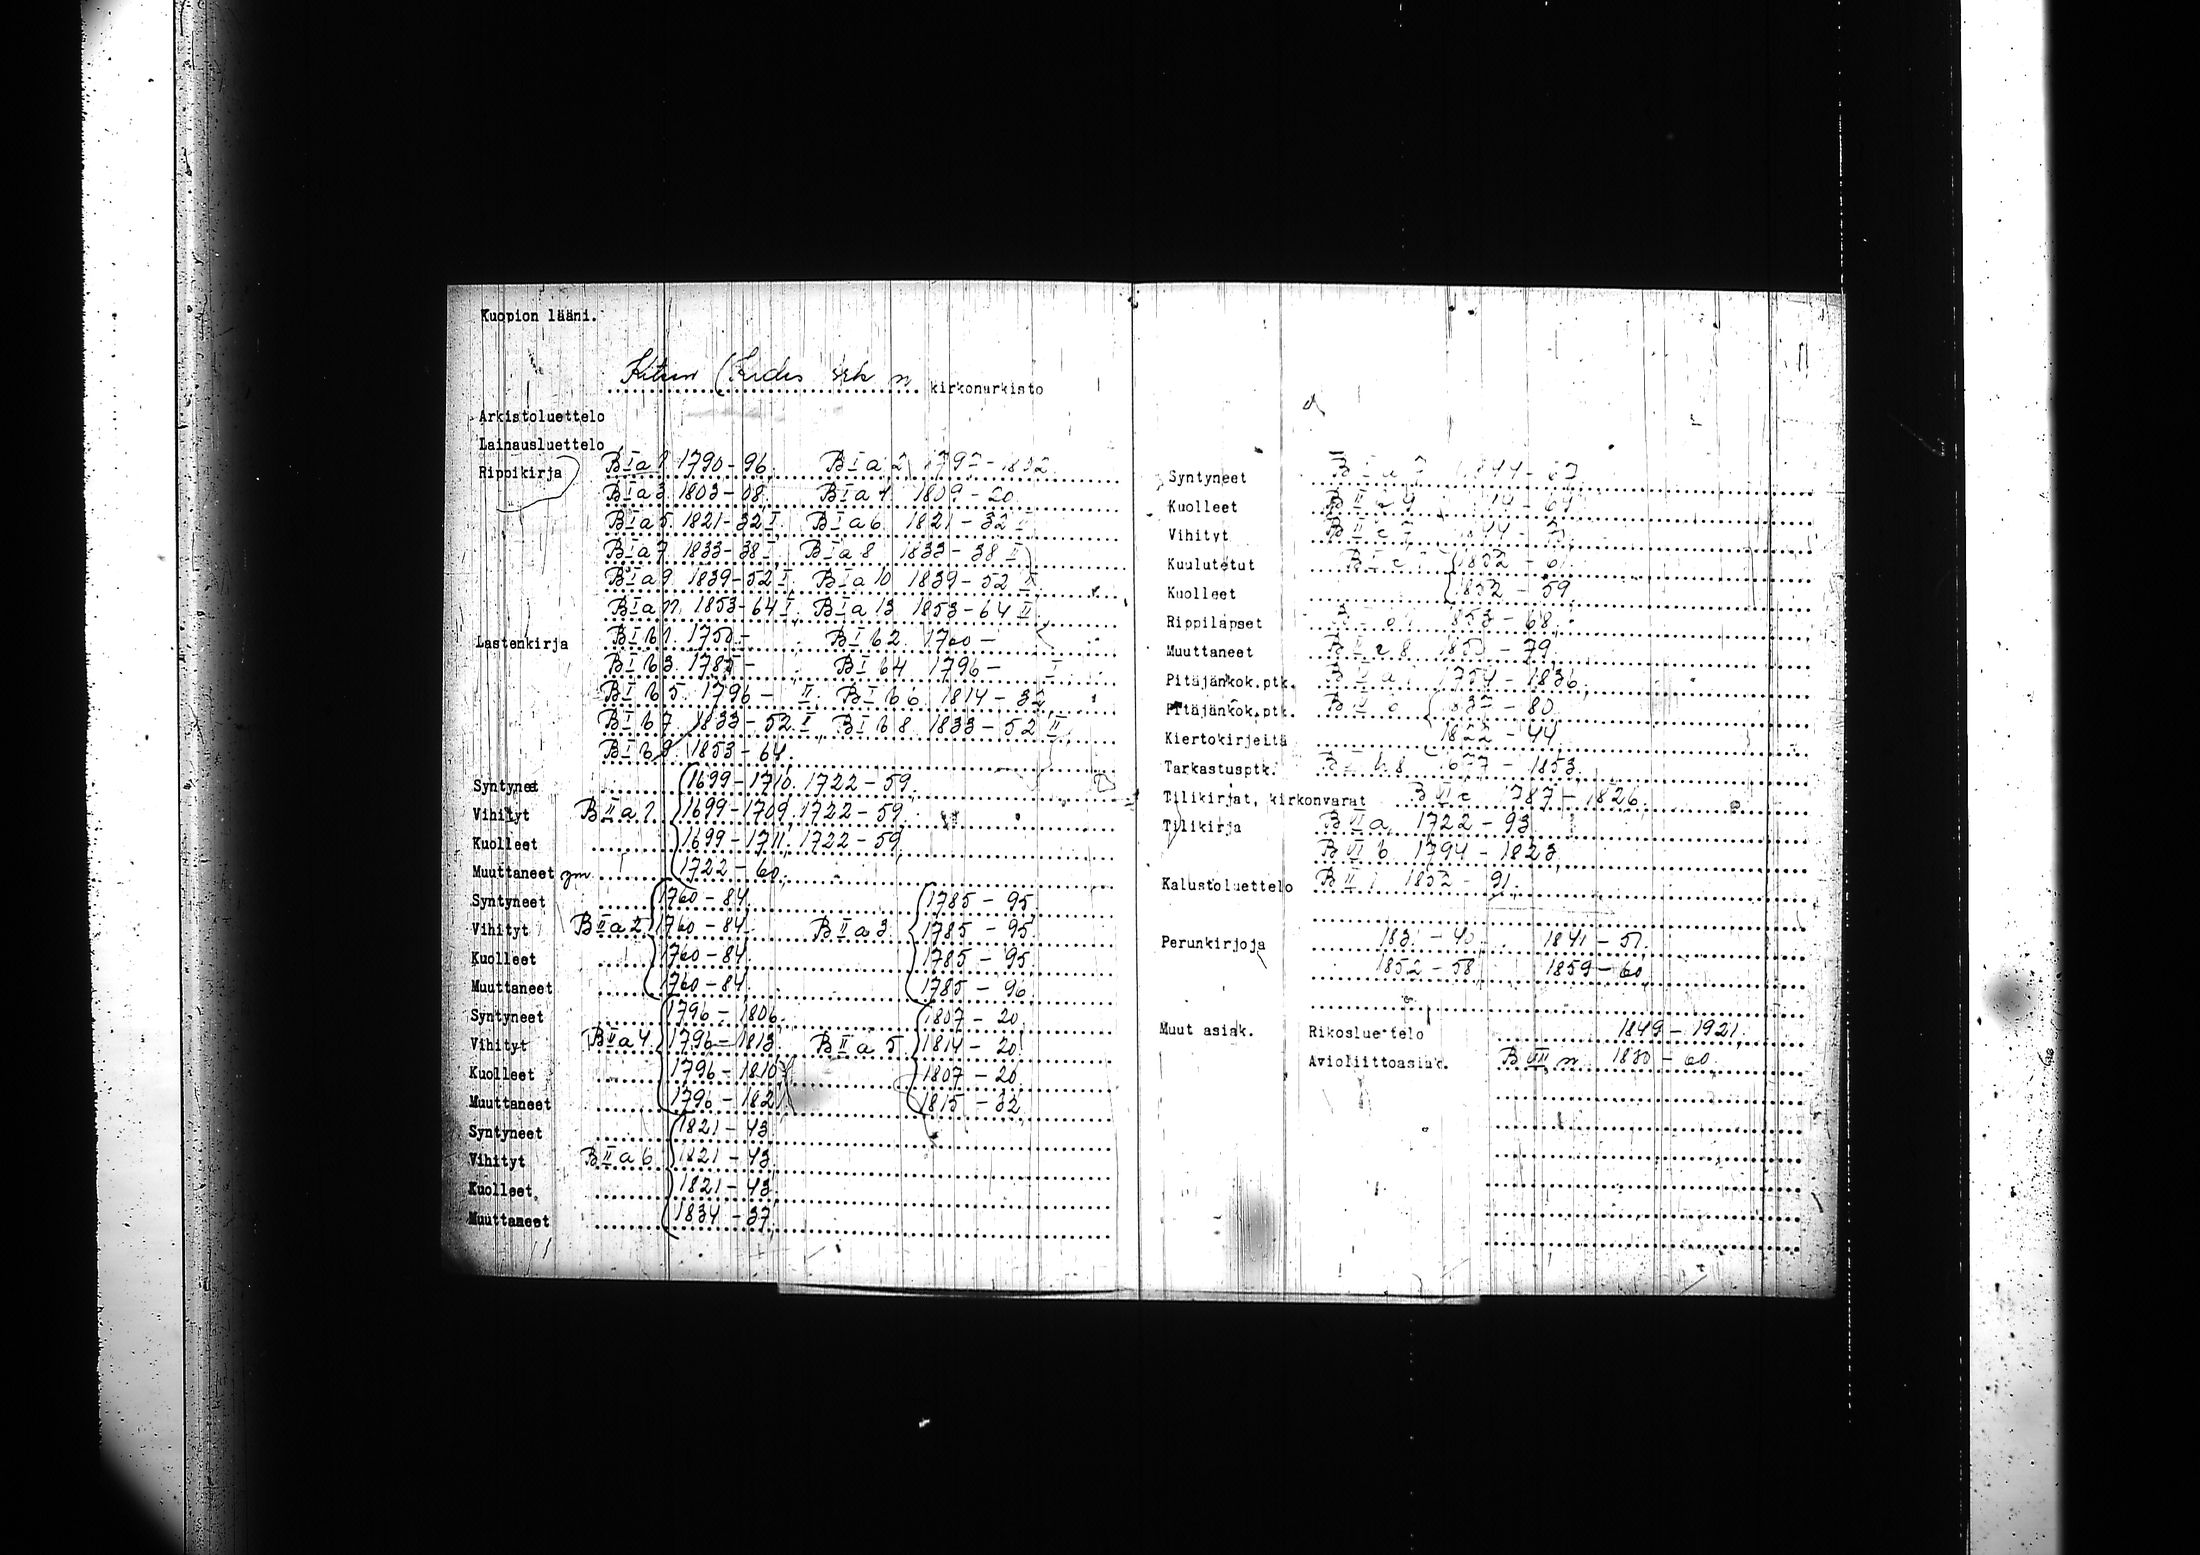 Kuopion lääni.
Kiteen (Kides srk n kirkonarkisto
Arkistoluettelo
Lainausluettelo
Rippikirja B I a 1 1790-96. B I a 2 1797-1802
B I a 3 1803-08. B I a 4 1809-20.
B I a 5 1821-32 I. B I a 6 1821-32 II
B I a 7 1833-38 I. B I a 8 1833-38 II
B I a 9 1839-52 I. B I a 10 1839-52 II
1853-64 I. B I a 13 1853-64 II
Lastenkirja B I b 1. 1750- B I b 2. 1760-
B I b 3. B I b 4 1796- I
B I b 5. 1796- II. B I b 6. 1814-32
B I b 7. 1833-52 I. B I b 8. 1833-52 II.
B I b 9. 1853-64.
Syntyneet 1699-1710. 1722-59.
Vihityt B II a 1. 1699-1709. 1722-59.
Kuolleet 1699-1711. 1722-59.
Muuttaneet ym 1722-60.
Syntyneet 1760-84. 1785-95.
Vihityt B II a 2 1760-84. B II a 3. 1785-95.
Kuolleet 1760-84. 1785-95.
Muuttaneet 1760-84. 1785-96.
Syntyneet 1796-1806. 1807-20.
Vihityt B II a 4. 1796-1813. B II a 5. 1814-20.
Kuolleet 1796-1810 1807-20.
Muuttaneet 1796-1821 1815-32.
Syntyneet 1821-43.
Vihityt B II a 6. 1821-43.
Kuolleet. 1821-43.
Muuttaneet 1834-37.
Syntyneet
Kuolleet
Vihityt
Kuulutetut 1852-61.
Kuolleet 1852-59.
Rippilapset 1853-68.
Muuttaneet 1853-79.
Pitäjänkok.ptk. 1754-1836.
Pitäjänkok.ptk. 1837-80.
Kiertokirjeitä 1822-44.
Tarkastusptk. 1677-1853.
Tilikirjat, kirkonvarat 1787-1826.
Tilikirja 1722-93.
1794-1823.
Kalustoluettelo 1852-91.
Perunkirjoja 1831-40. 1841-51.
1852-58 1859-60.
Muut asiak. Rikosluettelo 1849-1921.
Avioliittoasiak. 1830-60.